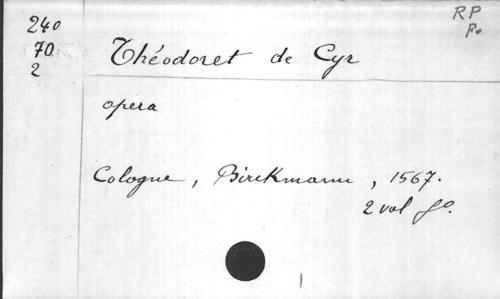 240
70
2
RP
Fo
Théodoret de Cyr
opera
Cologne, Birckmann, 1567.
2 vol fo.